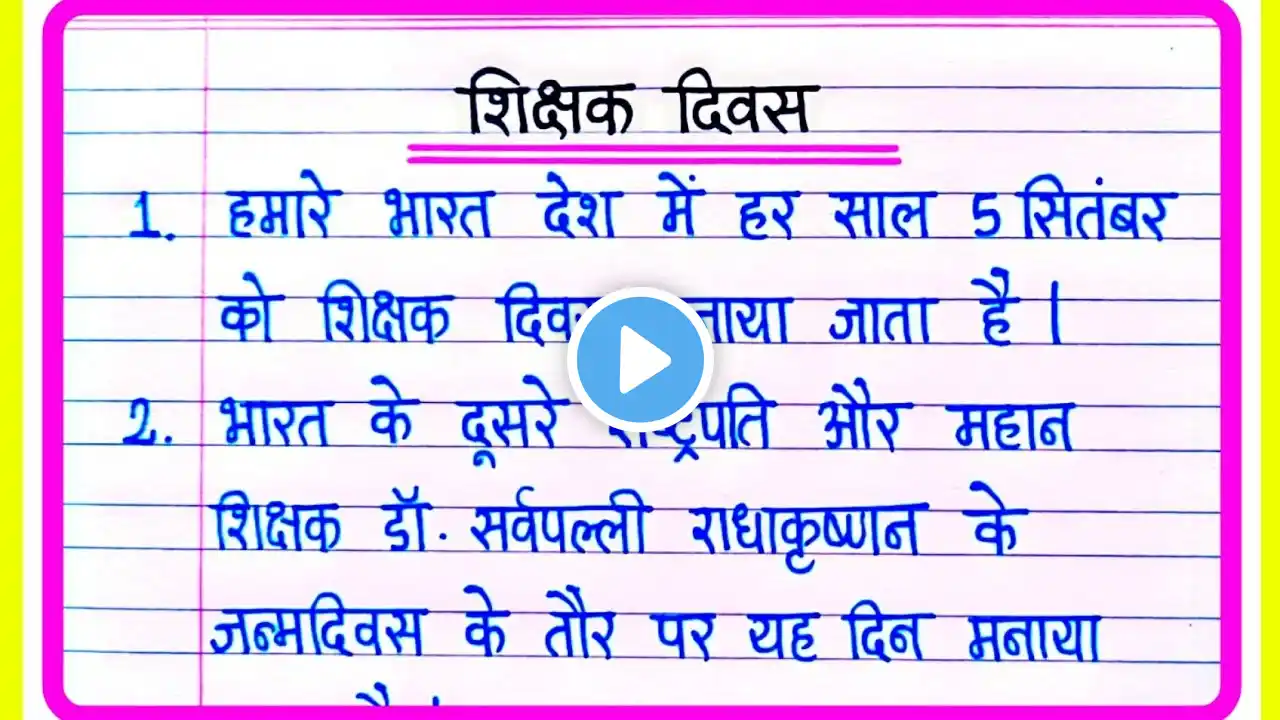 शिक्षक दिवस
1. हमारे भारत देश में हर साल 5 सितंबर
को शिक्षक जाता है।
2. भारत के दूसरे और महान
शिक्षक डॉ. सर्वपल्ली राधाकृष्णन के
जन्मदिवस के तौर पर यह दिन मनाया